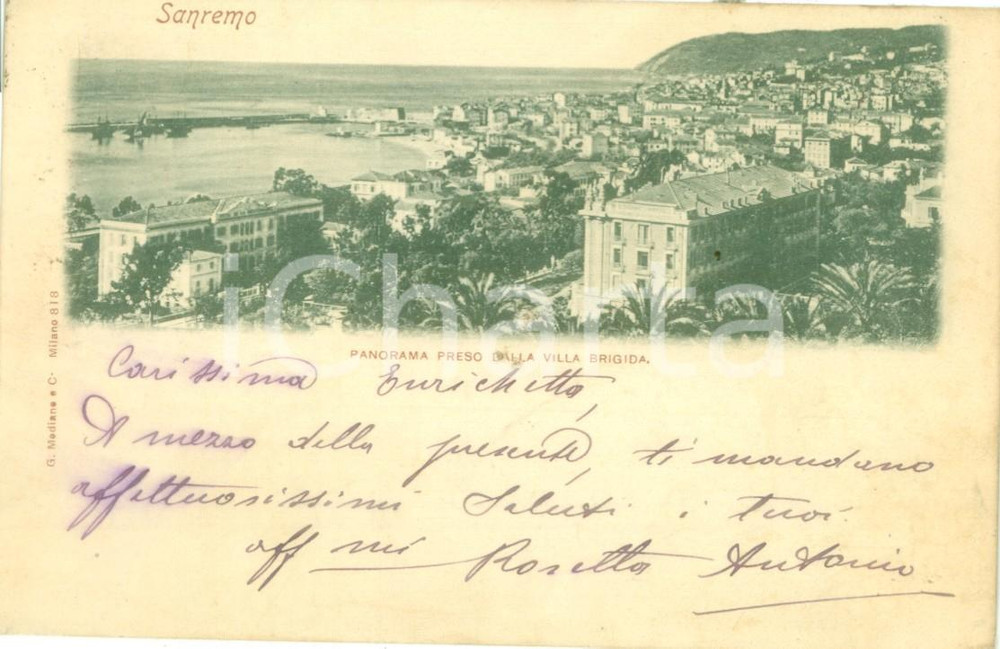 Sanremo
iCharta
PANORAMA PRESO DALLA VILLA BRIGIDA.
G. Mediane e C. Milano 818
Carissima Enrichetta,
A mezzo della presente, ti mandano
affettuosissimi Saluti i tuoi
aff mi Rosetta Antonio